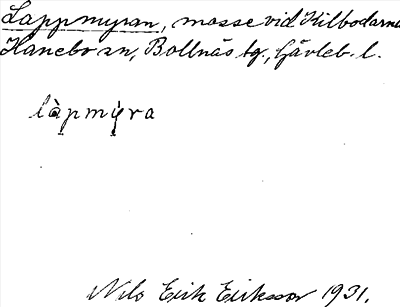 Lappmyran, mosse vid Kilbodarna
Hanebo sn, Bollnäs tg., Gävleb. l.
làpmy̠ra
Nils Erik Eriksson 1931.